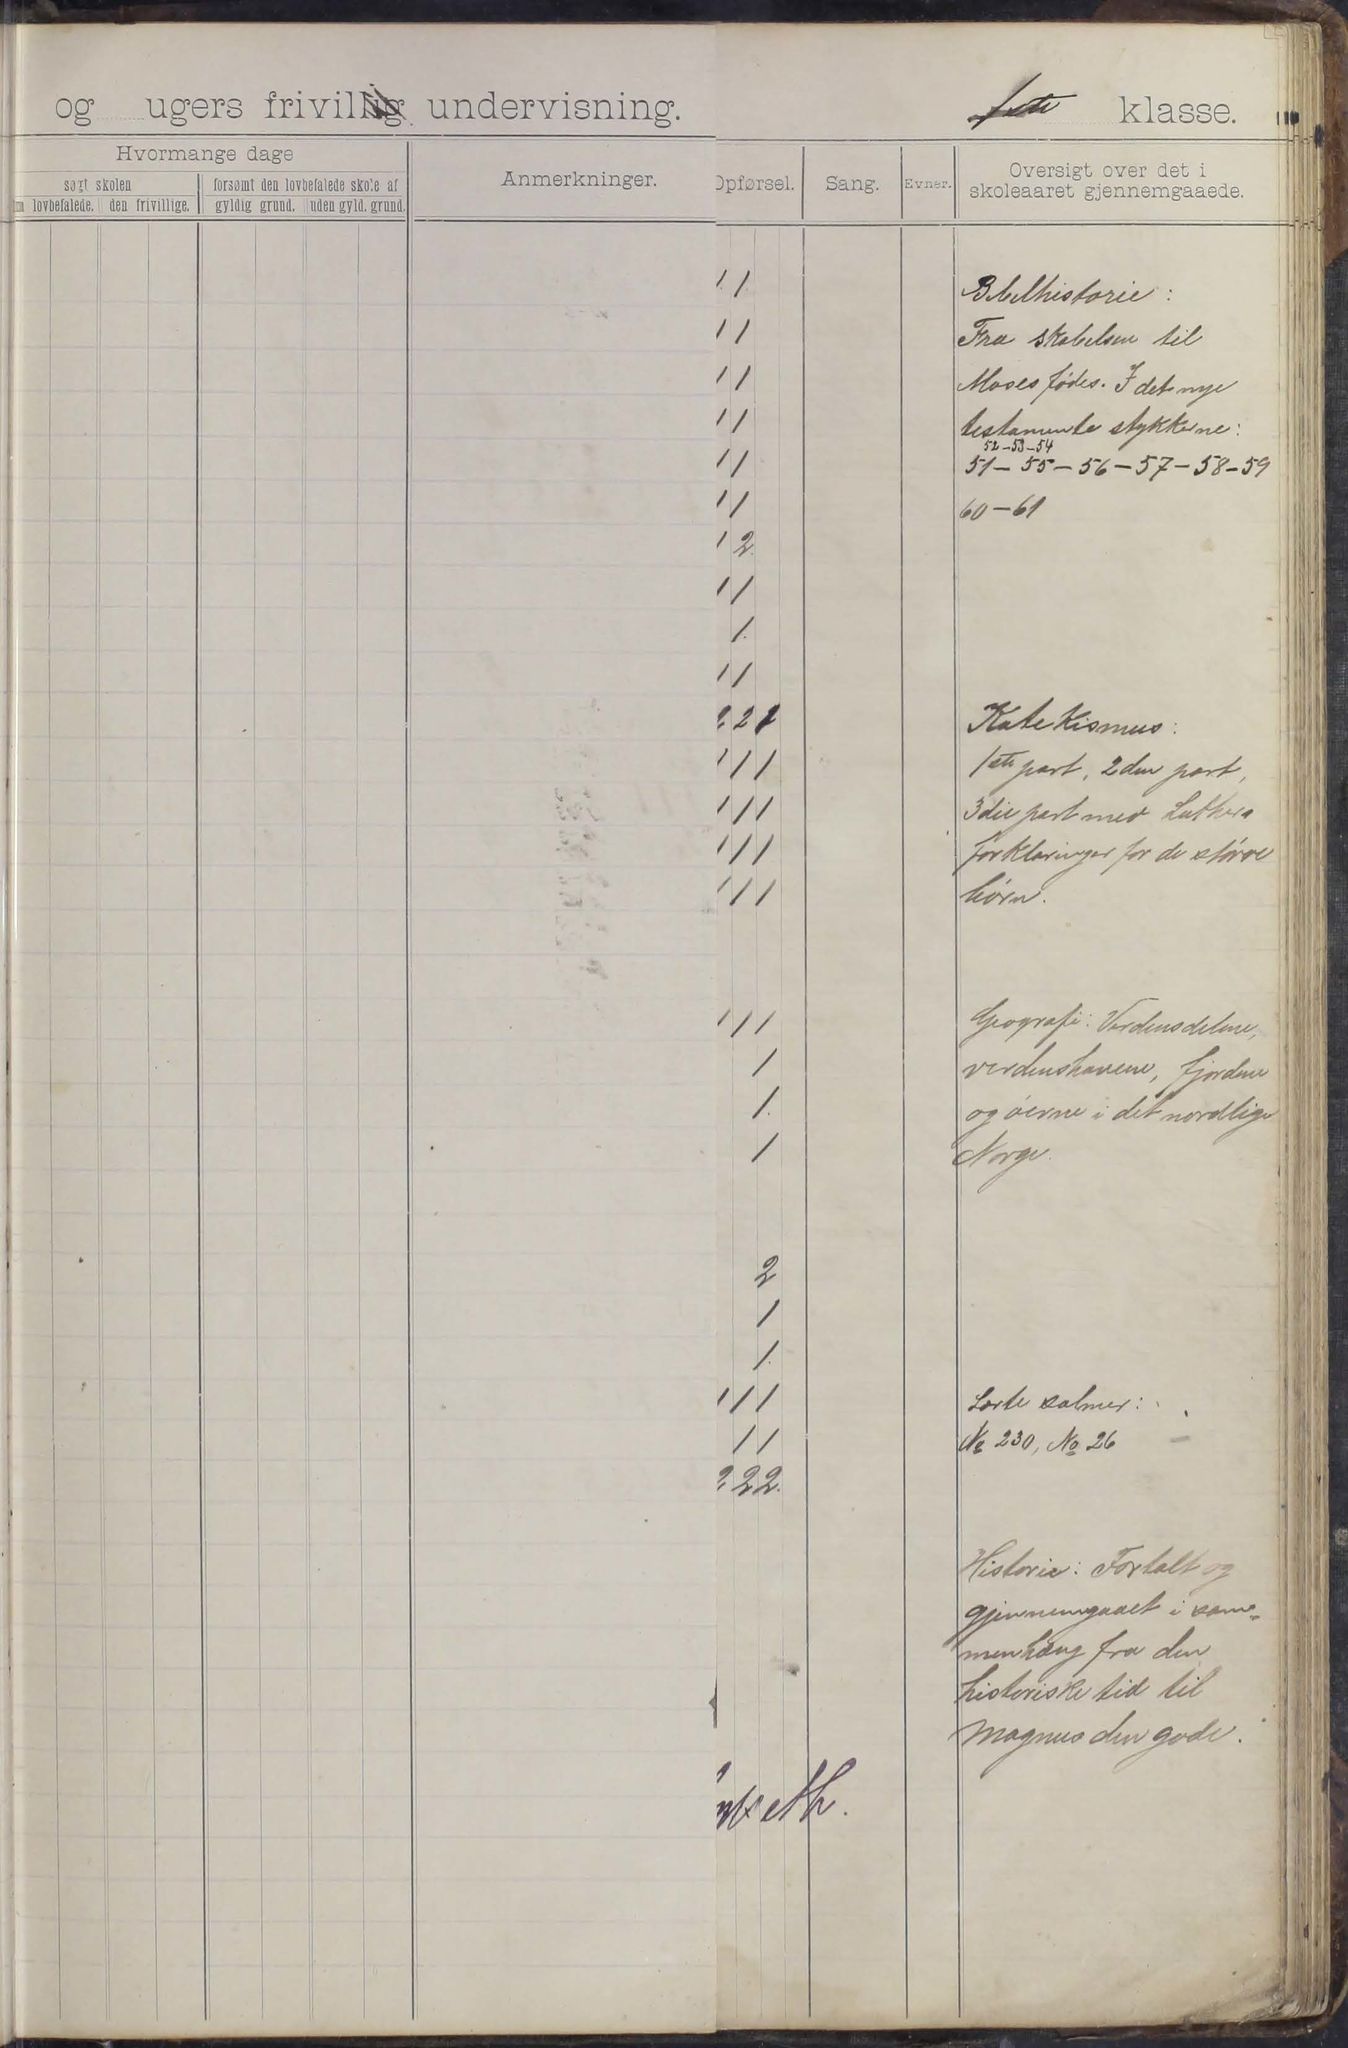 og ugers frivillig undervisning.
1ste klasse.
Hvormange dage
søgt skolen
forsømt den lovbefalede skole af
lovbefalede. den frivillige.
gyldig grund. uden gyld. grund.
Anmerkninger.
Opførsel. Sang. Evner.
Oversigt over det i
skoleaaret gjennemgaaede.
1 1
1 1
1 1
1 1
1 1
1 1
1 2
1 1
1
1 1
2 2 1
1 1 1
1 1 1
1 1 1
1 1 1
1 1 1
1
1
1
2
1
1
1 1 1
1 1
2 2 2
Bibelhistorie:
Fra skabelsen til
Moses fødes. I det nye
testamente stykkerne:
52-53-54
51-55-56-57-58-59
60-61
Katekismus:
1ste part, 2den part,
3die part med Luthers
forklaringer for de større
børn.
Geografi: Verdensdelene,
verdenshavene, fjordene
og øerne i det nordlige
Norge.
Lærte salmer:
No 230, No 26
Historie: Fortalt og
gjennemgaaet i sam-
menhæng fra den
historiske tid til
Magnus den gode.
seth.